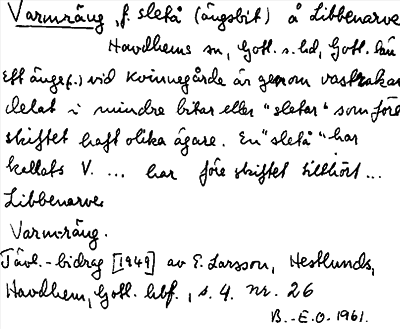 Varmräng, f. sletå (ängsbit) å Libbenarve
Havdhems sn, Gotl. s. hd, Gotl. län
Ett änge(.) vid Kvinnegårde är genom vastrakar
delat i mindre bitar eller "sletar" som före
skiftet haft olika ägare. En "sletå" har
kallats V. ... har före skiftet tillhört ...
Libbenarve.
Varmräng.
Tävl.-bidrag [1949] av E. Larsson, Hestlunds,
Havdhem, Gotl. hbf., s. 4. nr. 26
B.-E.O. 1961.